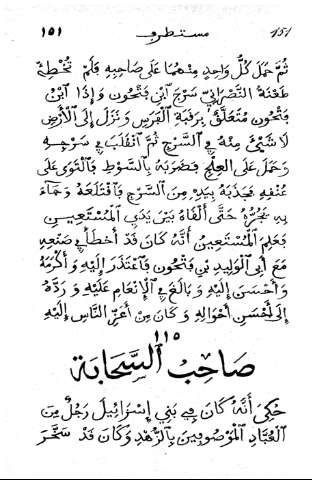 ١٥١ مستطرف 151
ثُمَّ حَمَلَ كُلُّ وَاحِدٍ مِنْهُمَا عَلَى صَاحِبِهِ فَلَمْ تُخْطِئْ
طَعْنَةُ النَّصْرَانِيِّ سَرْجَ ابْنِ فَتْحُونَ وَإِذَا ابْنُ
فَتْحُونَ مُتَعَلِّقٌ بِرَقَبَةِ الْفَرَسِ وَنَزَلَ إِلَى الْأَرْضِ
لَا شَيْئَ مِنْهُ فِي السَّرْجِ ثُمَّ انْقَلَبَ فِي سَرْجِهِ
وَحَمَلَ عَلَى الْعِلْجِ فَضَرَبَهُ بِالسَّوْطِ فَالْتَوَى عَلَى
عُنُقِهِ فَجَذَبَهُ بِيَدِهِ مِنَ السَّرْجِ فَاقْتَلَعَهُ وَجَاءَ
بِهِ يَجُرُّهُ حَتَّى أَلْقَاهُ بَيْنَ يَدَيِ الْمُسْتَعِينِ
فَعَلِمَ الْمُسْتَعِينُ أَنَّهُ كَانَ قَدْ أَخْطَأَ فِي صُنْعِهِ
مَعَ أَبِي الْوَلِيدِ بْنِ فَتْحُونَ فَاعْتَذَرَ إِلَيْهِ وَأَكْرَمَهُ
وَأَحْسَنَ إِلَيْهِ وَبَالَغَ فِي الْإِنْعَامِ عَلَيْهِ وَرَدَّهُ
إِلَى أَحْسَنِ أَحْوَالِهِ وَكَانَ مِنْ أَعَزِّ النَّاسِ إِلَيْهِ
١١٥
صَاحِبُ السَّحَابَةِ
حُكِيَ أَنَّهُ كَانَ فِي بَنِي إِسْرَائِيلَ رَجُلٌ مِنَ
الْعُبَّادِ الْمَوْصُوفِينَ بِالزُّهْدِ وَكَانَ قَدْ سَخَّرَ